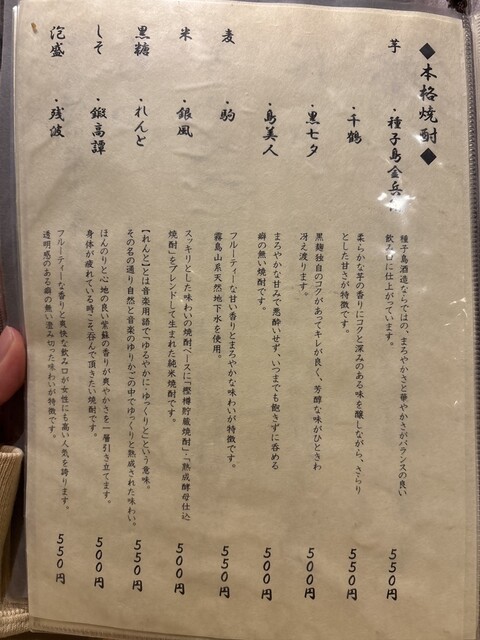 ◆本格焼酎◆
芋
・種子島金兵
種子島酒造ならではの、まろやかさと華やかさがバランスの良い
飲み口に仕上がっています。
550円
・千鶴
柔らかな芋の香りにコクと深みのある味を醸しながら、さらり
とした甘さが特徴です。
550円
・黒七夕
黒麹独自のコクがあってキレが良く、芳醇な味がひときわ
冴え渡ります。
500円
・島美人
まろやかな甘みで悪酔いせず、いつまでも飽きずに呑める
癖の無い焼酎です。
500円
麦
・駒
フルーティーな甘い香りとまろやかな味わいが特徴です。
霧島山系天然地下水を使用。
550円
米
・銀風
スッキリとした味わいの焼酎ベースに「樫樽貯蔵焼酎」「熟成酵母仕込
焼酎」をブレンドして生まれた純米焼酎です。
500円
黒糖
・れんと
【れんと】とは音楽用語で「ゆるやかに・ゆっくりと」という意味。
その名の通り自然と音楽のゆりかごの中でゆっくりと熟成された味わい。
550円
しそ
・鍛高譚
ほんのりと心地の良い紫蘇の香りが爽やかさを一層引き立てます。
身体が疲れている時こそ、呑んで頂きたい焼酎です。
500円
泡盛
・残波
フルーティーな香りと爽快な飲み口が女性にも高い人気を誇ります。
透明感のある癖の無い澄み切った味わいが特徴です。
550円